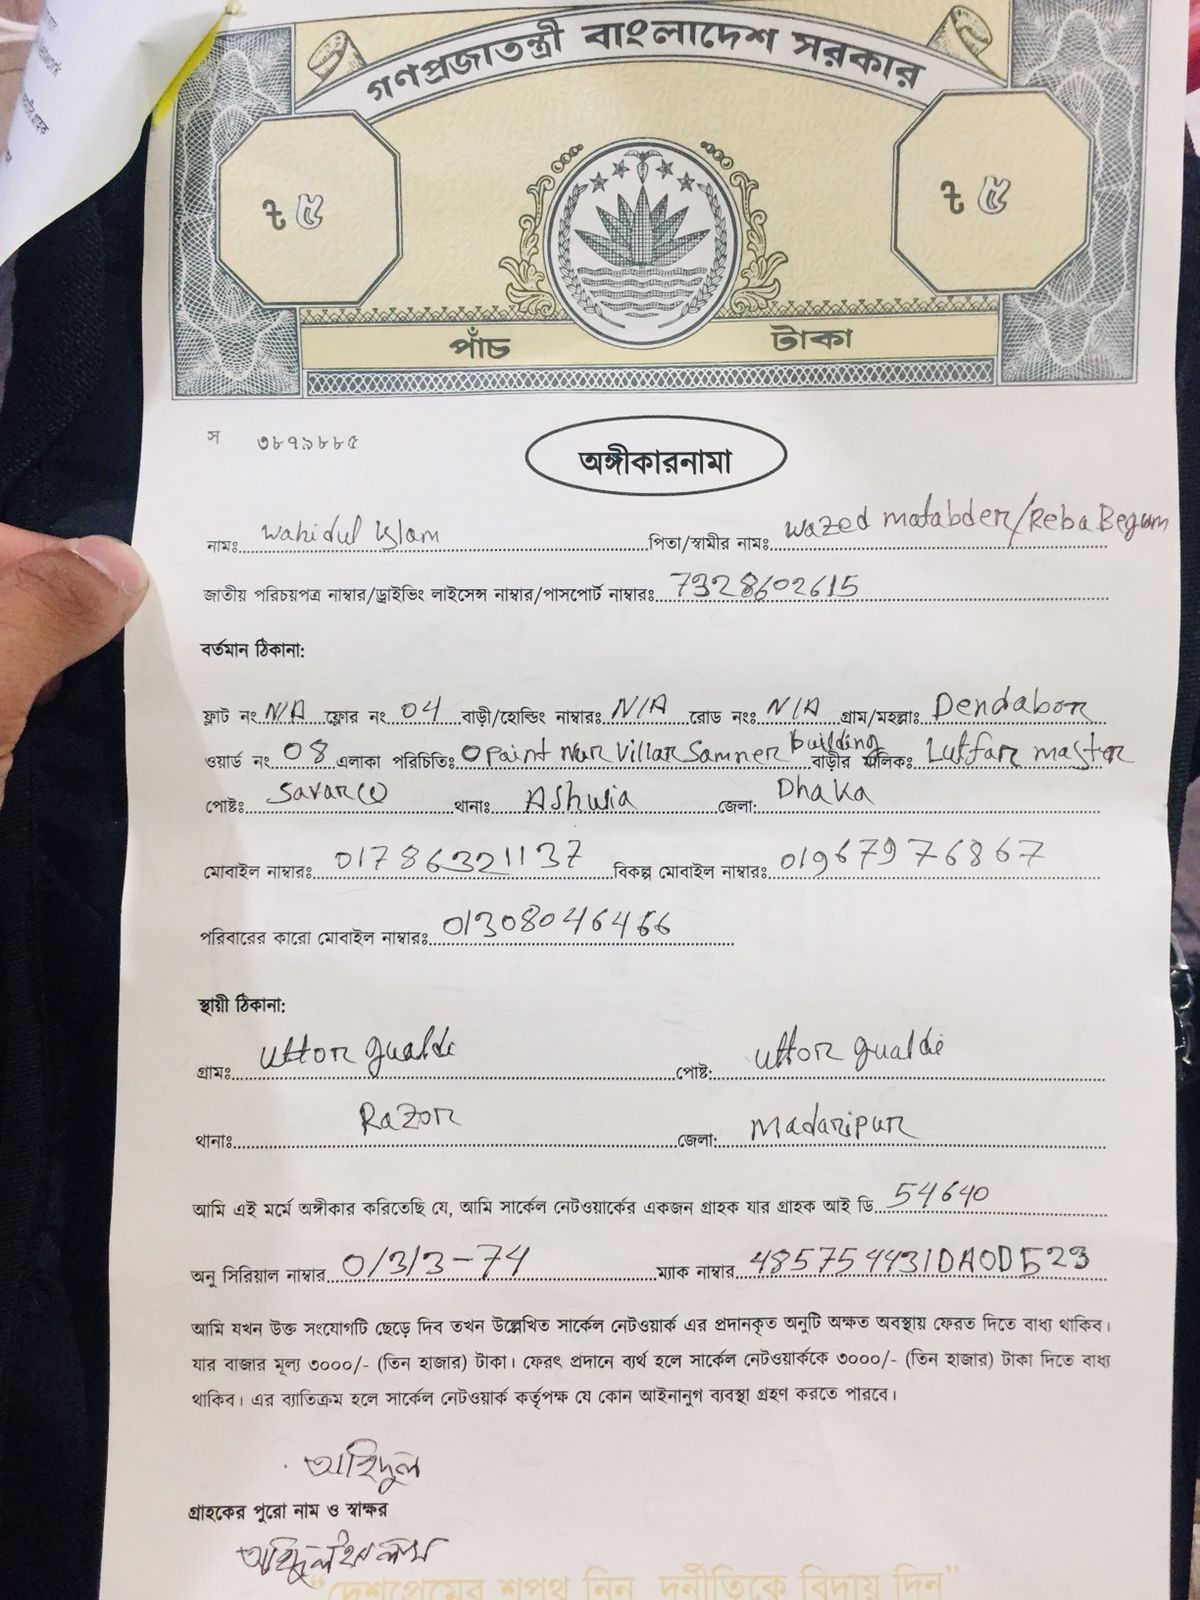 গণপ্রজাতন্ত্রী বাংলাদেশ সরকার
৳ ৫ ৳ ৫
পাঁচ টাকা
স ৩৮৭৯৮৮৫
অঙ্গীকারনামা
নামঃ Wahidul Islam পিতা/স্বামীর নামঃ Wazed matabder/Reba Begum
জাতীয় পরিচয়পত্র নাম্বার/ড্রাইভিং লাইসেন্স নাম্বার/পাসপোর্ট নাম্বারঃ 7328602615
বর্তমান ঠিকানা:
ফ্লাট নং N/A ফ্লোর নং 04 বাড়ী/হোল্ডিং নাম্বারঃ N/A রোড নংঃ N/A গ্রাম/মহল্লাঃ Dendabor
ওয়ার্ড নং 08 এলাকা পরিচিতিঃ building বাড়ীর মালিকঃ Lutfar master
পোষ্টঃ Savar থানাঃ Ashulia জেলা: Dhaka
মোবাইল নাম্বারঃ 01786321137 বিকল্প মোবাইল নাম্বারঃ 01967976867
পরিবারের কারো মোবাইল নাম্বারঃ 01308046466
স্থায়ী ঠিকানা:
গ্রামঃ Uttor gualdi পোষ্ট: Uttor gualdi
থানাঃ Razor জেলা: Madaripur
আমি এই মর্মে অঙ্গীকার করিতেছি যে, আমি সার্কেল নেটওয়ার্কের একজন গ্রাহক যার গ্রাহক আই ডি 54640
অনু সিরিয়াল নাম্বার 0/3/3-74 ম্যাক নাম্বার 485754431DA0D523
আমি যখন উক্ত সংযোগটি ছেড়ে দিব তখন উল্লেখিত সার্কেল নেটওয়ার্ক এর প্রদানকৃত অনুটি অক্ষত অবস্থায় ফেরত দিতে বাধ্য থাকিব।
যার বাজার মূল্য ৩০০০/- (তিন হাজার) টাকা। ফেরৎ প্রদানে ব্যর্থ হলে সার্কেল নেটওয়ার্ককে ৩০০০/- (তিন হাজার) টাকা দিতে বাধ্য
থাকিব। এর ব্যতিক্রম হলে সার্কেল নেটওয়ার্ক কর্তৃপক্ষ যে কোন আইনানুগ ব্যবস্থা গ্রহণ করতে পারবে।
অহিদুল
গ্রাহকের পুরো নাম ও স্বাক্ষর
অহিদুল ইসলাম
"দেশপ্রেমের শপথ নিন, দুর্নীতিকে বিদায় দিন"